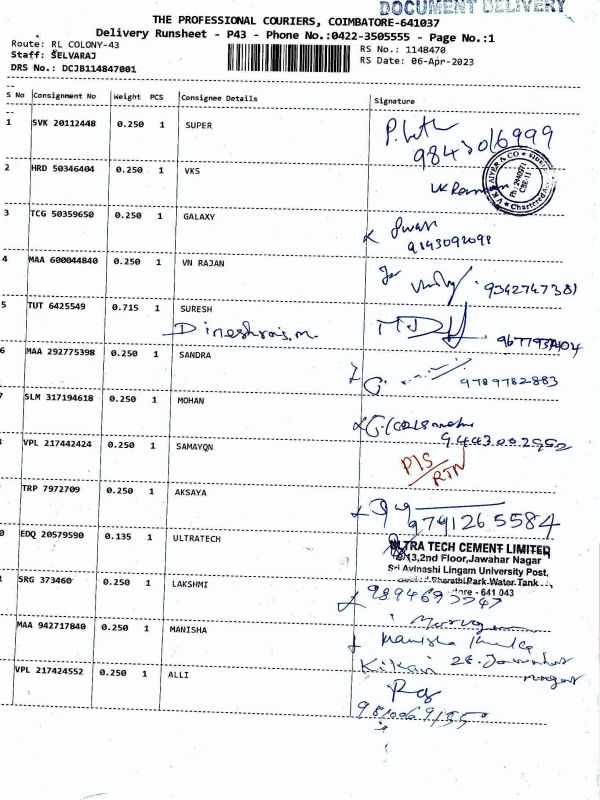 DOCUMENT DELIVERY
THE PROFESSIONAL COURIERS, COIMBATORE-641037
Delivery Runsheet - P43 - Phone No.:0422-3505555 - Page No.:1
Route: RL COLONY-43 RS No.: 1148470
Staff: SELVARAJ RS Date: 06-Apr-2023
DRS No.: DCJB114847001
S No Consignment No Weight PCS Consignee Details Signature
1 SVK 20112448 0.250 1 SUPER
9843016999
2 HRD 50346404 0.250 1 VKS
3 TCG 50359650 0.250 1 GALAXY
9143092098
4 MAA 600044840 0.250 1 VN RAJAN
9342747381
5 TUT 6425549 0.715 1 SURESH
6 MAA 292775398 0.250 1 SANDRA
9789782883
SLM 317194618 0.250 1 MOHAN
9443002952
VPL 217442424 0.250 1 SAMAYQN
RTN
TRP 7972709 0.250 1 AKSAYA
9791265584
0 EDQ 20579590 0.135 1 ULTRATECH
TRA TECH CEMENT LIMITED
13,2nd Floor,Jawahar Nagar
Sri Avinashi Lingam University Post,
Bharathi Park Water Tank
- 641 043
SRG 373460 0.250 1 LAKSHMI
MAA 942717840 0.250 1 MANISHA
Manisha
VPL 217424552 0.250 1 ALLI